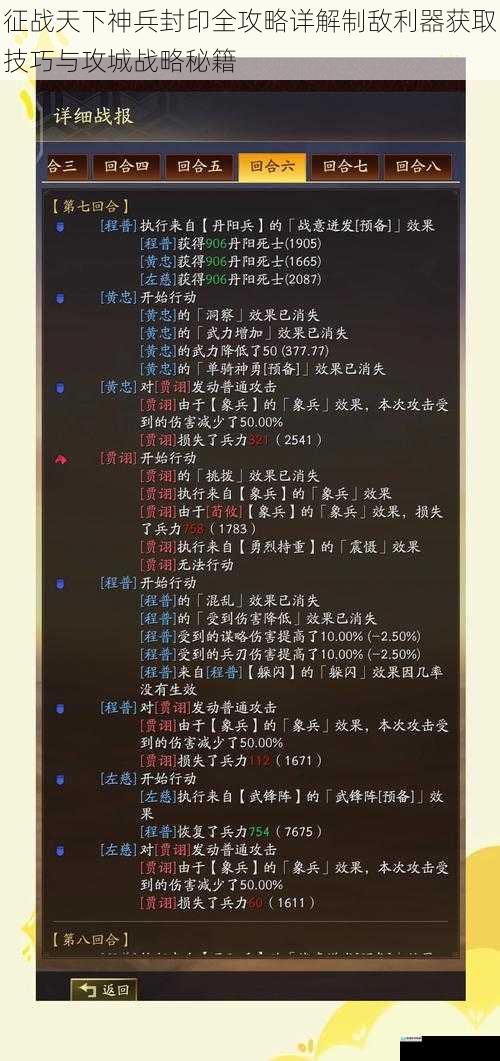 征战天下神兵封印全攻略详解制敌利器获取
技巧与攻城战略秘籍
详细战报
合三 回合四 回合五 回合六 回合七 回合八
【第七回合】
[程普]执行来自【丹阳兵】的「战意迸发[预备]」效果
[程普]获得906丹阳死士(1905)
[黄忠]获得906丹阳死士(1665)
[左慈]获得906丹阳死士(2087)
[黄忠]开始行动
[黄忠]的「洞察」效果已消失
[黄忠]的「武力增加」效果已消失
[黄忠]的武力降低了50(377.77)
[黄忠]的「单骑神勇[预备]」效果已消失
[黄忠]对[贾诩]发动普通攻击
[贾诩]由于【象兵】的「象兵」效果，本次攻击受
到的伤害减少了50.00%
[贾诩]损失了兵力321（2541）
[贾诩]开始行动
[贾诩]的「挑拨」效果已消失
[贾诩]执行来自【象兵】的「象兵」效果
[贾诩]由于[荀攸]【象兵】的「象兵」效果，损失
了兵力758（1783）
[贾诩]执行来自【勇烈持重】的「震慑」效果
[贾诩]无法行动
[程普]开始行动
[程普]的「混乱」效果已消失
[程普]的「受到伤害降低」效果已消失
[程普]受到的谋略伤害提高了10.00%(-2.50%)
[程普]受到的兵刃伤害提高了10.00%(-2.50%)
[程普]来自[程普]【躲闪】的「躲闪」效果因几率
没有生效
[程普]对[贾诩]发动普通攻击
[贾诩]由于【象兵】的「象兵」效果，本次攻击受
到的伤害减少了50.00%
[贾诩]损失了兵力112（1671）
[左慈]开始行动
[左慈]执行来自【武锋阵】的「武锋阵[预备]」效
果
[程普]恢复了兵力754（7675）
[左慈]对[贾诩]发动普通攻击
[贾诩]由于【象兵】的「象兵」效果，本次攻击受
到的伤害减少了50.00%
[贾诩]损失了兵力60（1611）
【第八回合】
返回